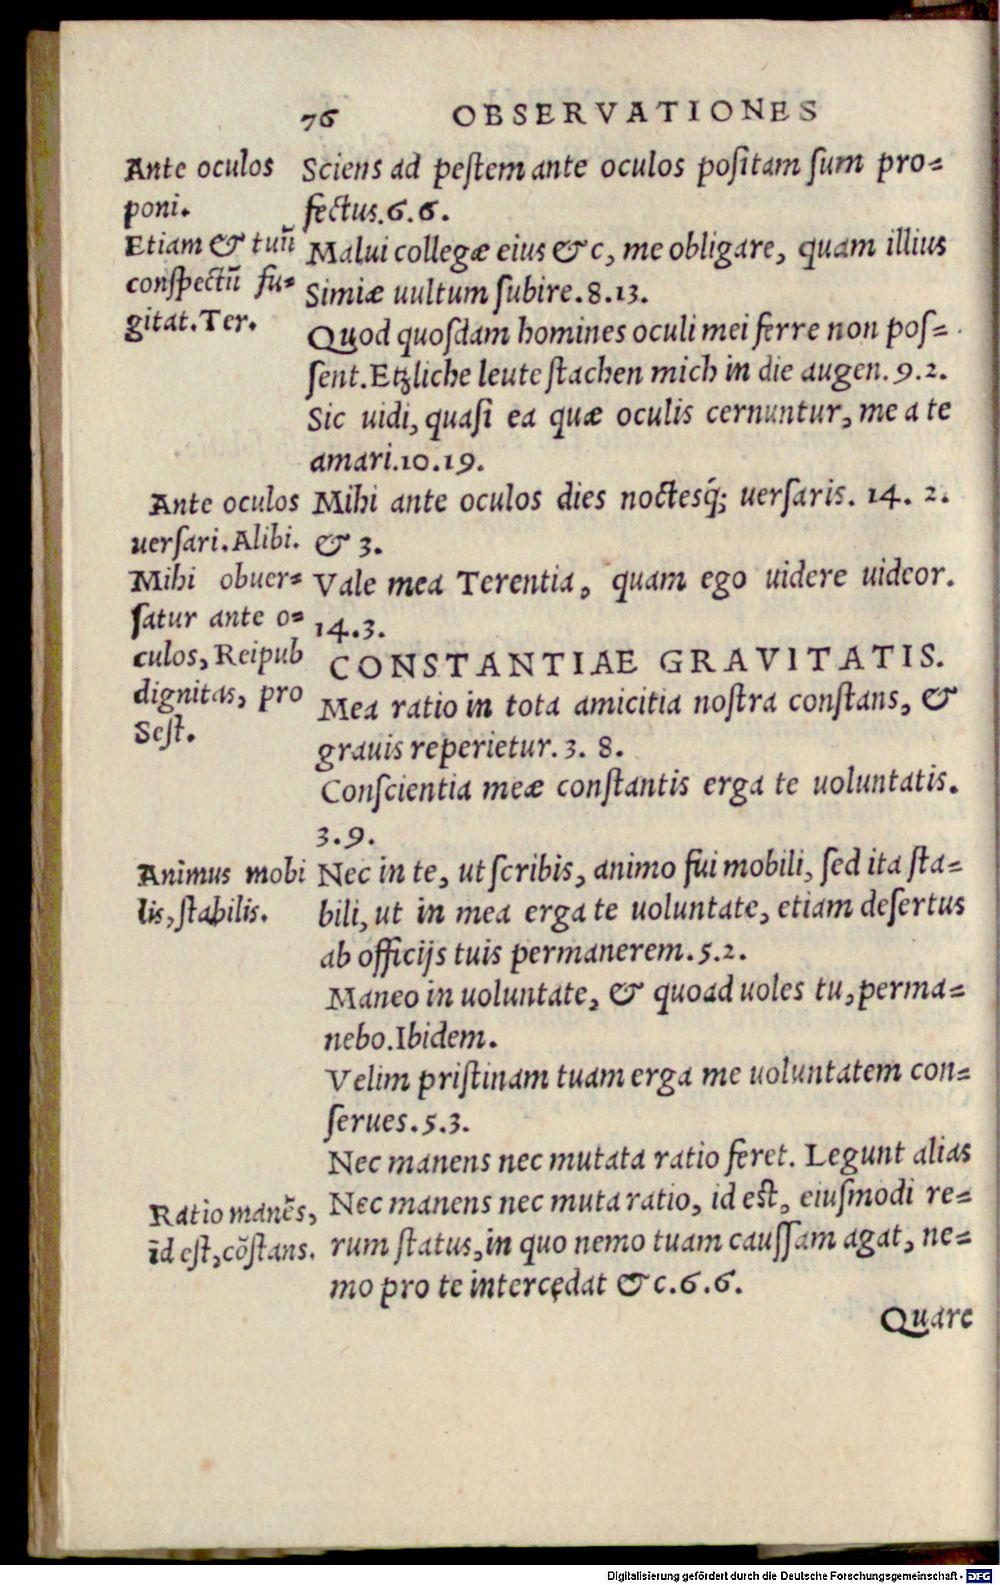 76 OBSERVATIONES
Ante oculos
poni.
Etiam & tuū
conſpectū fu-
gitat. Ter.
Sciens ad peſtem ante oculos poſitam ſum pro-
fectus. 6. 6.
Malui collegæ eius &c, me obligare, quam illius
Simiæ uultum ſubire. 8. 13.
Quod quoſdam homines oculi mei ferre non poſ-
ſent. Etzliche leute ſtachen mich in die augen. 9. 2.
Sic uidi, quaſi ea quæ oculis cernuntur, me a te
amari. 10. 19.
Ante oculos
uerſari. Alibi.
Mihi obuer-
ſatur ante o-
culos, Reipub
dignitas, pro
Seſt.
Mihi ante oculos dies noctesq́; uerſaris. 14. 2.
& 3.
Vale mea Terentia, quam ego uidere uideor.
14. 3.
CONSTANTIAE GRAVITATIS.
Mea ratio in tota amicitia noſtra conſtans, &
grauis reperietur. 3. 8.
Conſcientia meæ conſtantis erga te uoluntatis.
3. 9.
Animus mobi
lis, ſtabilis.
Nec in te, ut ſcribis, animo fui mobili, ſed ita ſta-
bili, ut in mea erga te uoluntate, etiam deſertus
ab officijs tuis permanerem. 5. 2.
Maneo in uoluntate, & quoad uoles tu, perma-
nebo. Ibidem.
Velim priſtinam tuam erga me uoluntatem con-
ſerues. 5. 3.
Nec manens nec mutata ratio feret. Legunt alias
Ratio manẽs,
id eſt, cōſtans.
Nec manens nec muta ratio, id eſt, eiuſmodi re-
rum ſtatus, in quo nemo tuam cauſſam agat, ne-
mo pro te intercędat &c. 6. 6.
Quare
Digitalisierung gefördert durch die Deutsche Forschungsgemeinschaft - DFG